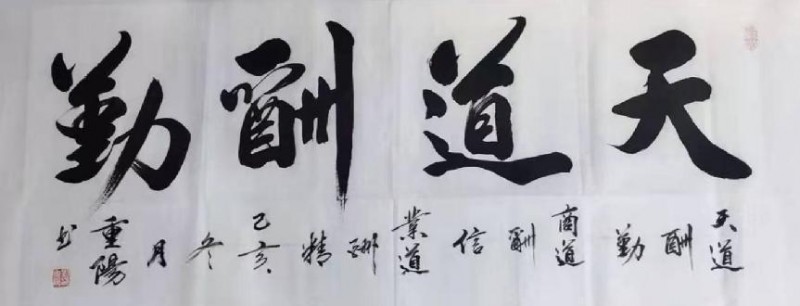 天道酬勤
天道
酬
勤
商道
酬
信
業道
酬
精
己亥
冬
月
重陽
书